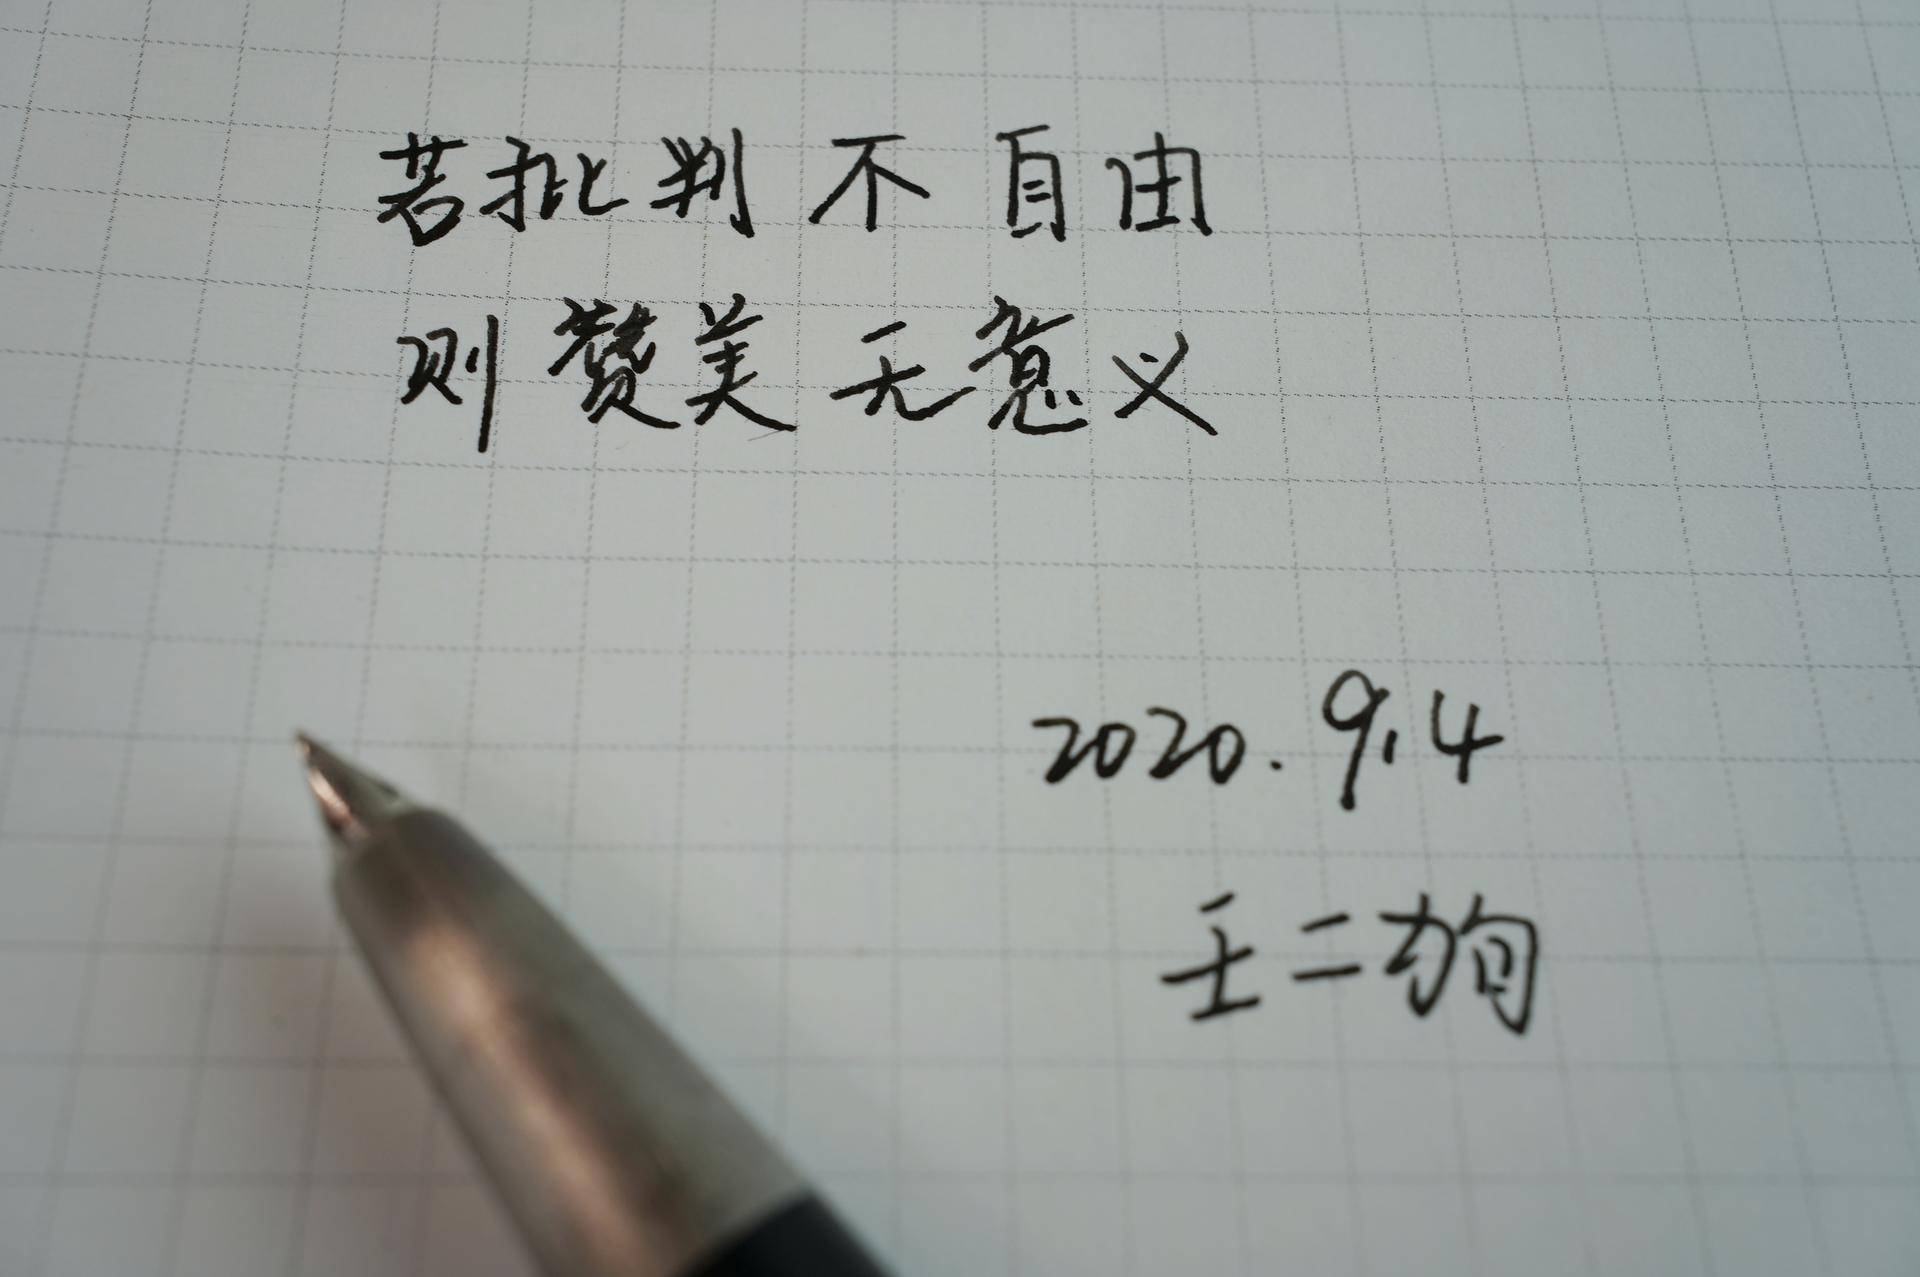 若批判不自由
则赞美无意义
2020.9.4
王二狗